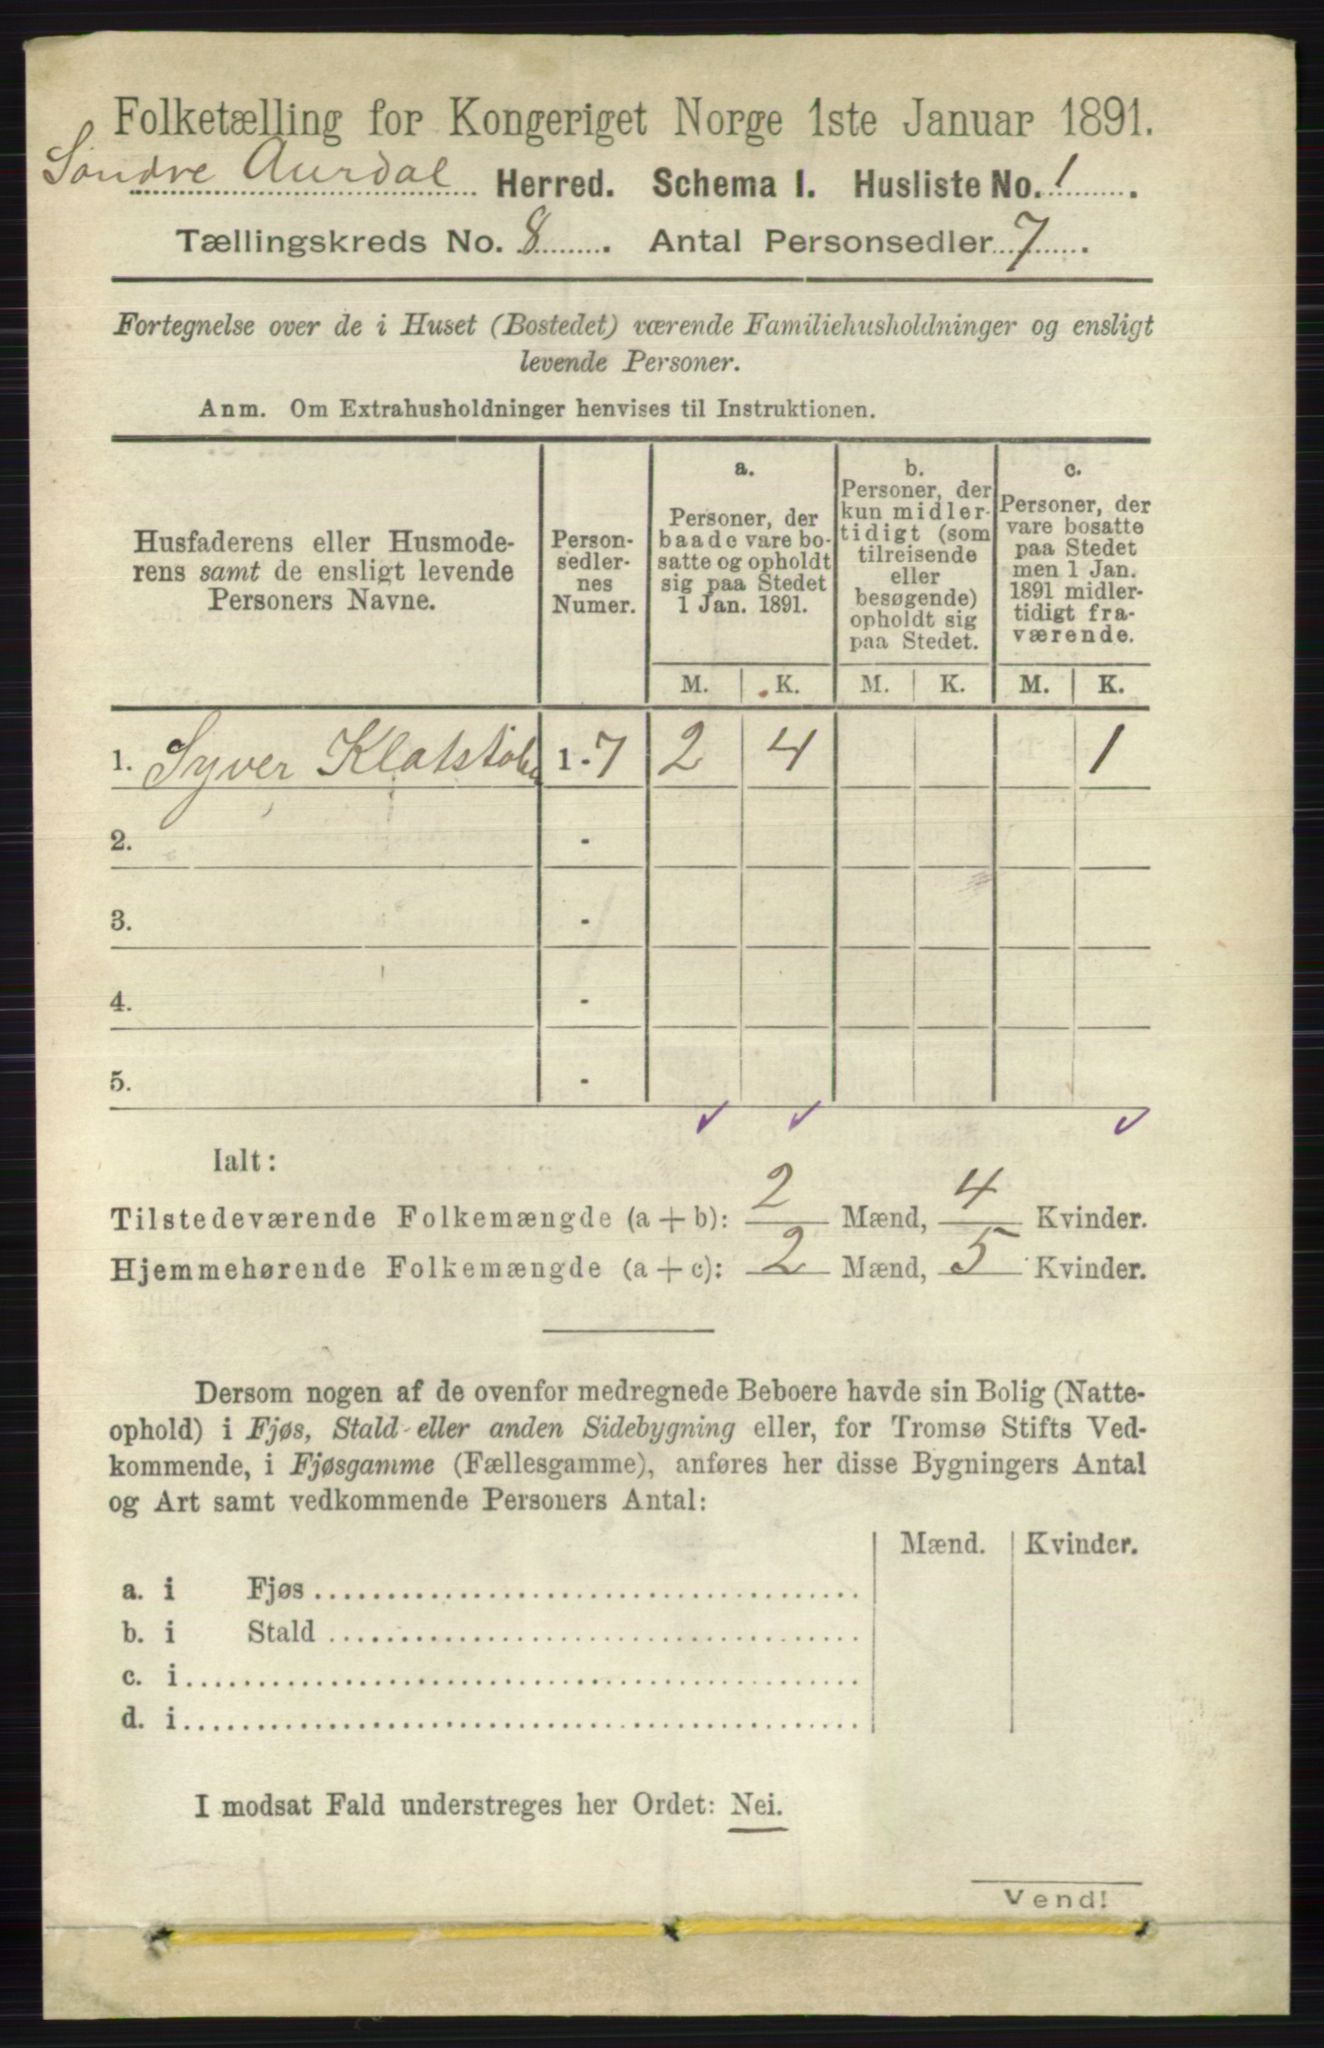 Folketælling for Kongeriget Norge 1ste Januar 1891.
Søndre Aurdal Herred. Schema I. Husliste No. 1.
Tællingskreds No. 8. Antal Personsedler 7.
Fortegnelse over de i Huset (Bostedet) værende Familiehusholdninger og ensligt
levende Personer.
Anm. Om Extrahusholdninger henvises til Instruktionen.
Husfaderens eller Husmode-
rens samt de ensligt levende
Personers Navne.
Person-
sedler-
nes
Numer.
a.
Personer, der
baade vare bo-
satte og opholdt
sig paa Stedet
1 Jan. 1891.
b.
Personer, der
kun midler-
tidigt (som
tilreisende
eller
besøgende)
opholdt sig
paa Stedet.
c.
Personer, der
vare bosatte
paa Stedet
men 1 Jan.
1891 midler-
tidigt fra-
værende.
M. K. M. K. M. K.
1. Syver 1-7 2 4 1
2. -
3. -
4. -
5. -
Ialt:
Tilstedeværende Folkemængde (a + b): 2 Mænd, 4 Kvinder.
Hjemmehørende Folkemængde (a + c): 2 Mænd, 5 Kvinder.
Dersom nogen af de ovenfor medregnede Beboere havde sin Bolig (Natte-
ophold) i Fjøs, Stald eller anden Sidebygning eller, for Tromsø Stifts Ved-
kommende, i Fjøsgamme (Fællesgamme), anføres her disse Bygningers Antal
og Art samt vedkommende Personers Antal:
Mænd. Kvinder.
a. i Fjøs
b. i Stald
c. i
d. i
I modsat Fald understreges her Ordet: Nei.
Vend!